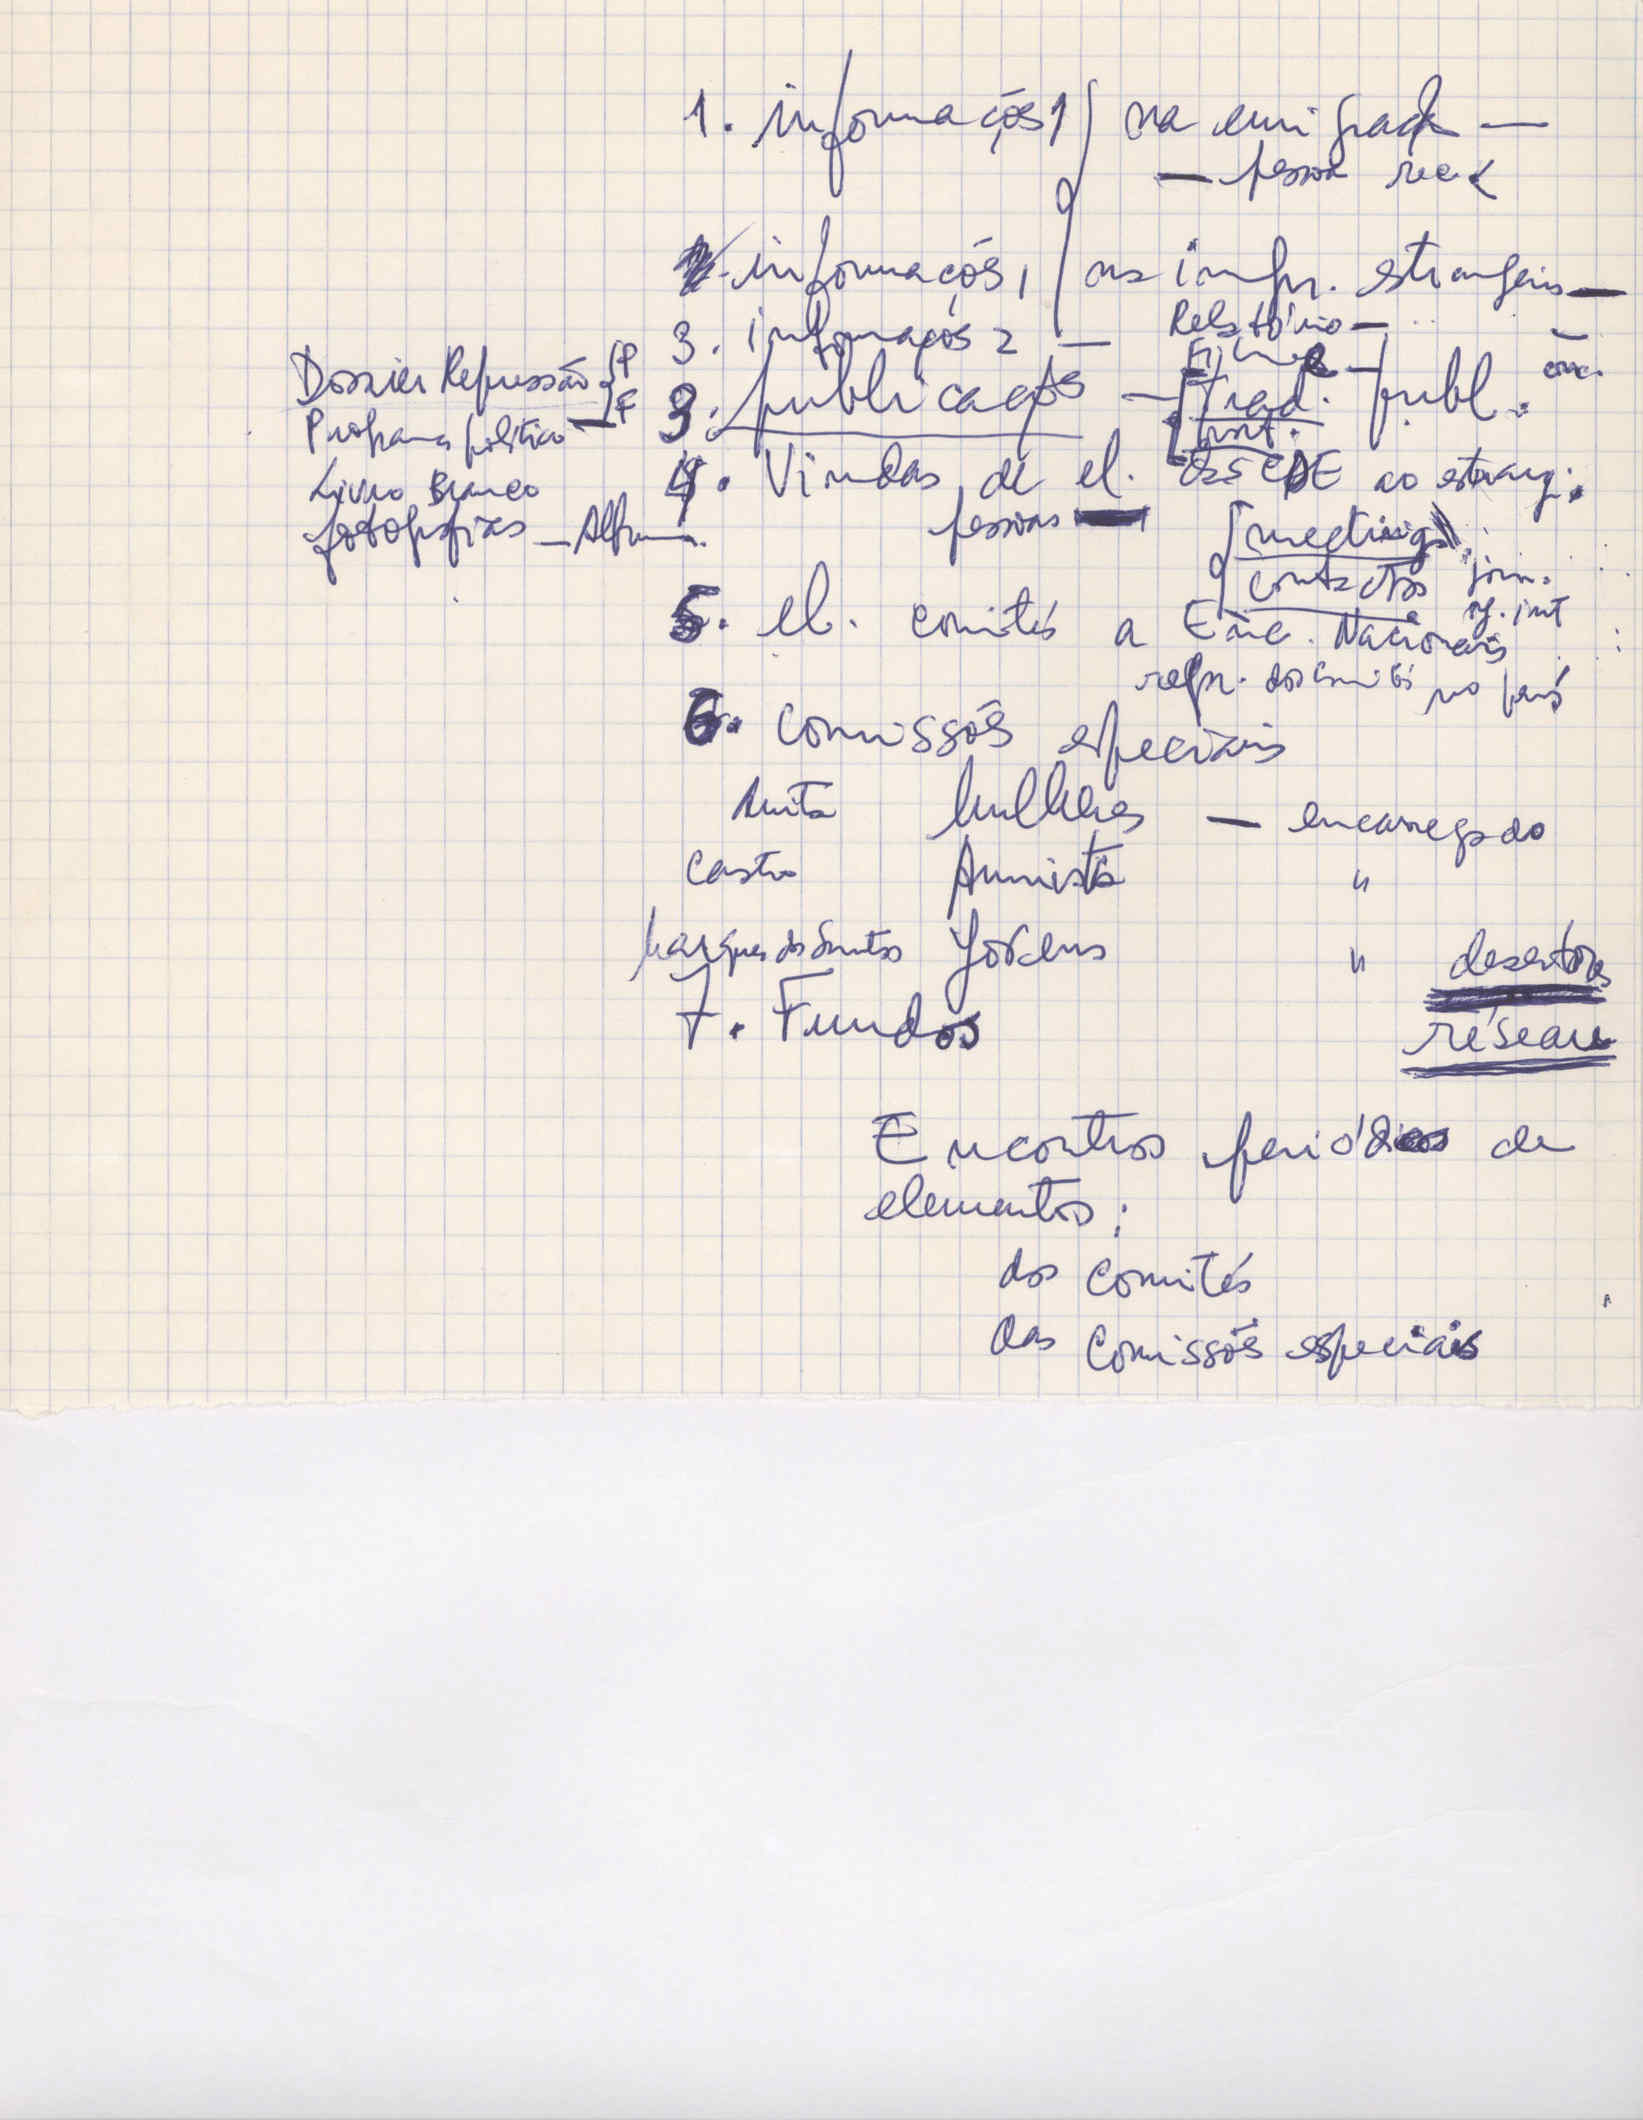 1. informações 1 na emigração —
— pessoa
informações 1 na impr. estrangeira —
3. informações 2 — Relatório —
Filmes —
Dossier Repressão P F
3. publicações — trad. publ.
Programa político —
4. Vindas de el. CDE ao estrang.
pessoas
Livro Branco
fotografias — Album
meetings
contactos
5. el. comités a Enc. Nacionais
repr. dos comités no país
6. comissões especiais
Anita Mulheres — encarregado
Castro Amnistia "
Marques dos Santos Jovens " desertores
7. Fundos réseau
Encontros periódicos de
elementos:
dos comités
das comissões especiais